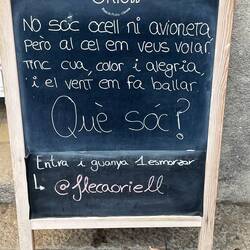 NO SÓC OCELL NI AVIONETA,
PERÒ AL CEL EM VEUS VOLAR.
TINC CUA, COLOR I ALEGRIA,
I EL VENT EM FA BALLAR.
Què sóc?
Entra i guanya 1 esmorzar
@flecaoriell